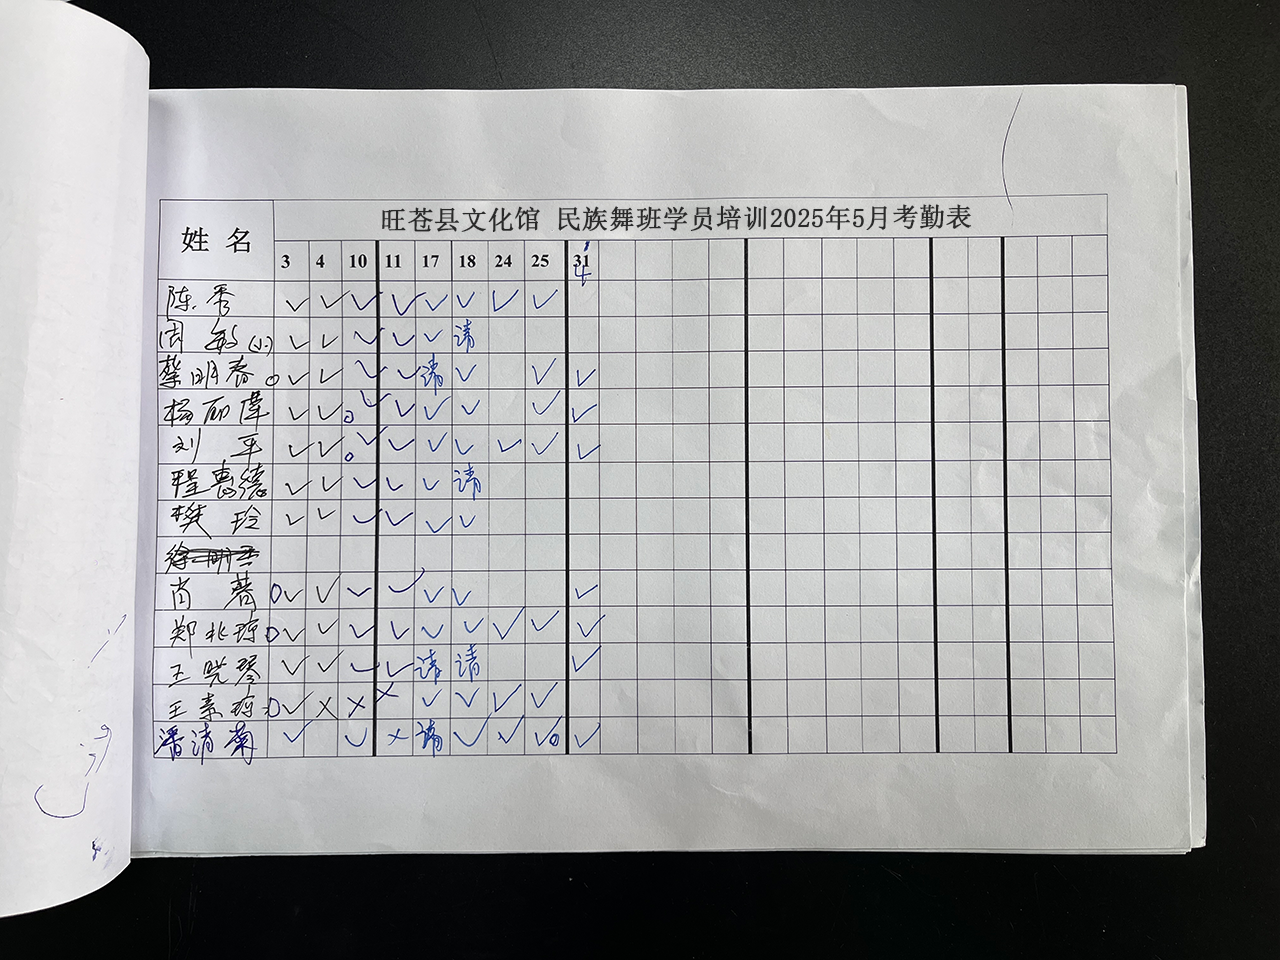 旺苍县文化馆 民族舞班学员培训2025年5月考勤表
姓名 3 4 10 11 17 18 24 25 31
陈秀 ✓ ✓ ✓ ✓ ✓ ✓ ✓ ✓
周敏(小) ✓ ✓ ✓ ✓ ✓ 请
蔡明春 ✓ ✓ ✓ ✓ 请 ✓ ✓ ✓
杨丽萍 ✓ ✓ ✓ ✓ ✓ ✓ ✓ ✓
刘平 ✓ ✓ ✓ ✓ ✓ ✓ ✓ ✓ ✓
程惠德 ✓ ✓ ✓ ✓ ✓ 请
樊玲 ✓ ✓ ✓ ✓ ✓ ✓
肖蓉 ✓ ✓ ✓ ✓ ✓ ✓ ✓
郑兆琼 ✓ ✓ ✓ ✓ ✓ ✓ ✓ ✓ ✓
王晓琴 ✓ ✓ ✓ ✓ 请 请 ✓
王素琼 ✓ × × × ✓ ✓ ✓ ✓
潘清菊 ✓ ✓ × 请 ✓ ✓ ✓ ✓